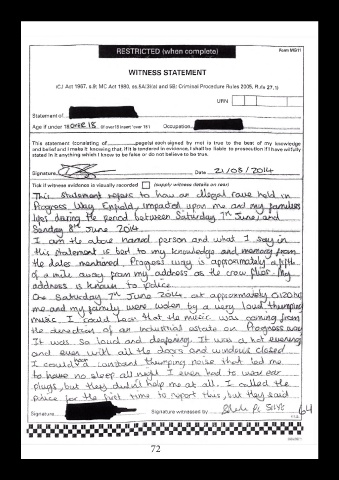 RESTRICTED (when complete)
Form MG11
WITNESS STATEMENT
(CJ Act 1967, s.9; MC Act 1980, ss.5A(3)(a) and 5B; Criminal Procedure Rules 2005, Rule 27.1)
URN
Statement of
Age if under 18 OVER 18 (if over 18 insert 'over 18') Occupation
This statement (consisting of page(s) each signed by me) is true to the best of my knowledge
and belief and I make it knowing that, if it is tendered in evidence, I shall be liable to prosecution if I have wilfully
stated in it anything which I know to be false or do not believe to be true.
Signature Date 21/08/2014
Tick if witness evidence is visually recorded (supply witness details on rear)
This statement refers to how an illegal rave held in
Progress Way Enfield, impacted upon me and my families
lives during the period between Saturday 7th June and
Sunday 8th June 2014.
I am the above named person and what I say in
this statement is best to my knowledge and memory from
the dates mentioned. Progress way is approximately a fifth
of a mile away from my address as the crow flies. My
address is known to police.
One Saturday 7th June 2014, at approximately
me and my family were woken by a very loud thumping
music. I could hear that the music was coming from
the direction of an industrial estate on Progress way
It was so loud and deafening. It was a hot evening
and even with all the doors and windows closed
I could hear a constant thumping noise that led me
to have no sleep all night I even had to wear ear
plugs, but they didn't help me at all. I called the
police for the first time to report this, but they said
Signature Signature witnessed by 64
72